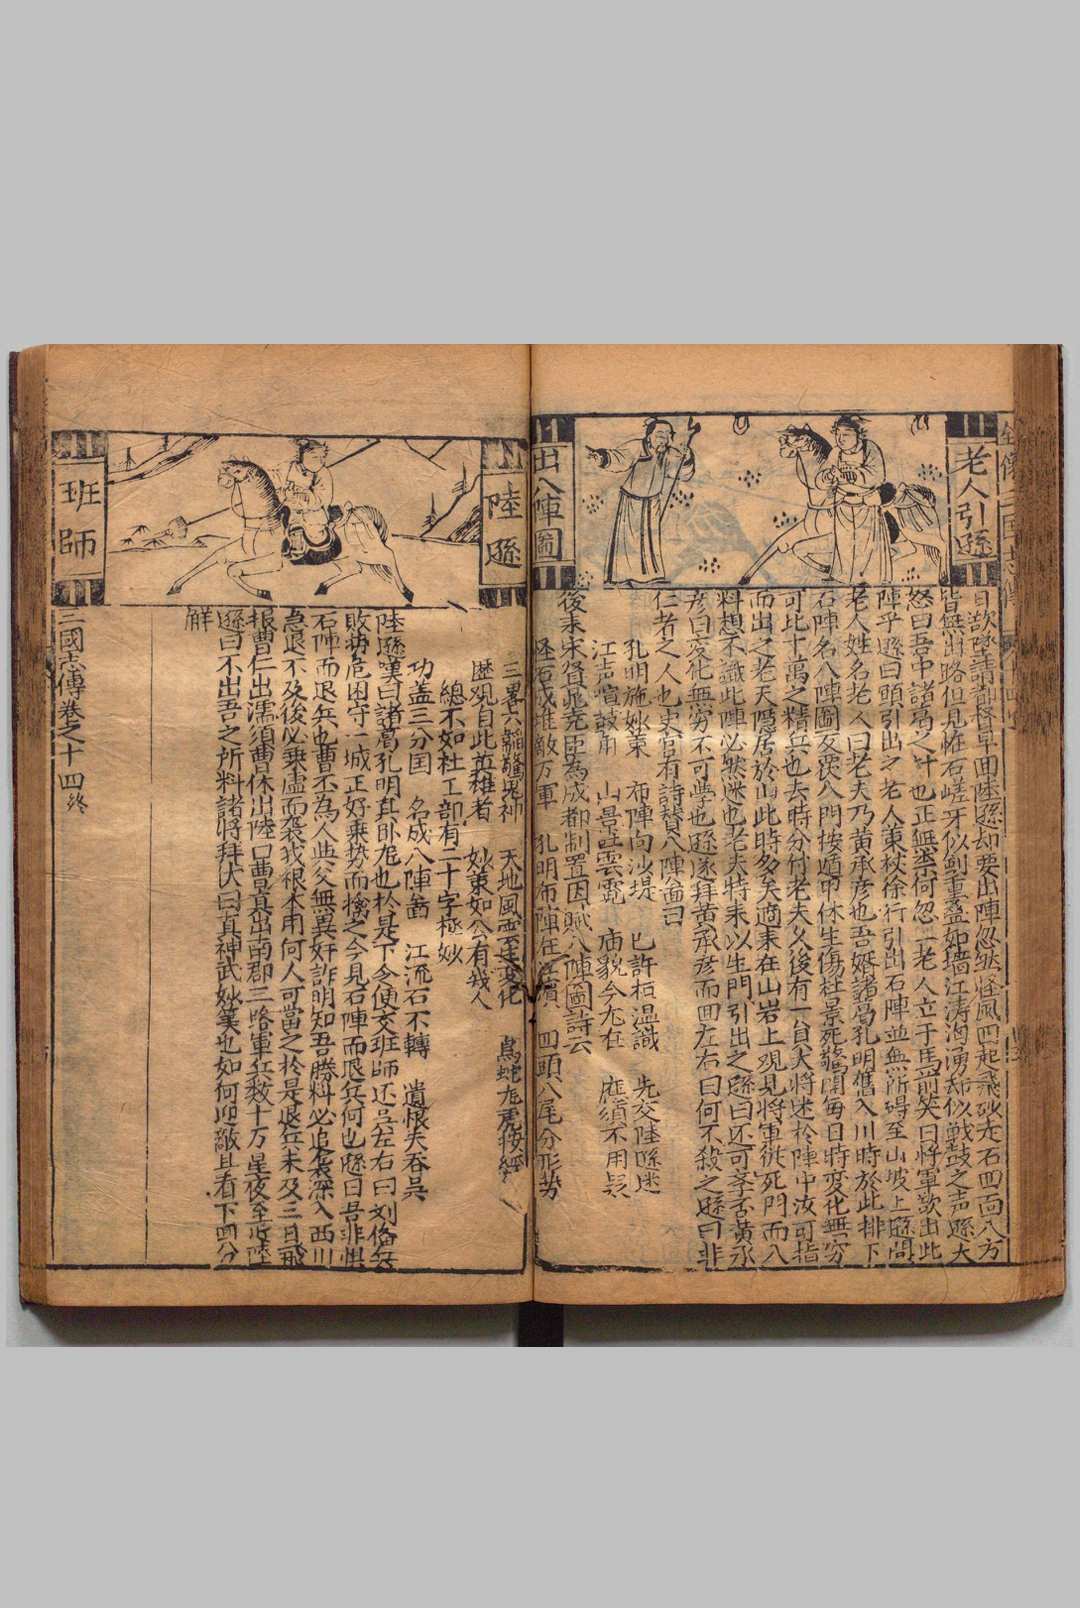 老人引遜
出八陣圖
日欲墜請都督早回陸遜却要出陣忽然怪風四起飛砂走石四面八方
皆無出路但見怪石嵯牙似劍重叠如墙江涛洶湧却似戰鼓之声遜大
怒曰吾中諸葛之計也正無柰何忽一老人立于馬前笑曰將軍欲出此
陣乎遜曰願引出之老人策杖徐行引出石陣並無所碍至山坡上遜問
老人姓名老人曰老夫乃黃承彦也吾婿諸葛孔明舊入川時於此排下
石陣名八陣圖反復八門按遁甲休生傷杜景死驚開每日時変化無穷
可比十萬之精兵也去時分付老夫久後有一員大將迷於陣中汝可指
而出之老夫隱居於山此時多矣適来在山岩上观見將軍従死門而入
料想不識此陣必然迷也老夫特来以生門引出之遜曰还可李否黃承
彦曰变化無穷不可學也遜遂拜黃承彦而回左右曰何不殺之遜曰非
仁者之人也史官有詩賛八陣啚曰
孔明施妙策　布陣向沙堤　已許桓温識　先交陸遜迷
江声喧鼓角　山景 雲霓　庙貌今尤在　 須不用疑
後来宋督 克臣為成都制置因賦八陣圖詩云
怪石成堆敵万軍　孔明布陣在江濱　四頭八尾分形势
陸遜
班師
三畧六韜驚鬼神　天地風雲 变化　鳥蛇龙虎按 經
歴观自此英雄者　妙策如公有我人
總不如杜工部有二十字極妙
功盖三分国　名成八陣啚　江流石不轉　遺恨失吞吳
陸遜嘆曰諸葛孔明真卧龙也於是下令便交班師还吳左右曰刘俻兵
敗势危困守一城正好乗势而擒之今見石陣而退兵何也遜曰吾非惧
石陣而退兵也曹丕為人與父無異奸詐明知吾勝料必追袭深入西川
急退不及後必乗虚而袭我根本用何人可當之於是退兵未及三日飛
報曹仁出濡須曹休出陸口曹真出南郡三路軍兵数十万星夜至此陸
遜曰不出吾之所料諸將拜伏曰真神武妙筭也如何迎敵且看下囬分
觧
三國志傳卷之十四終